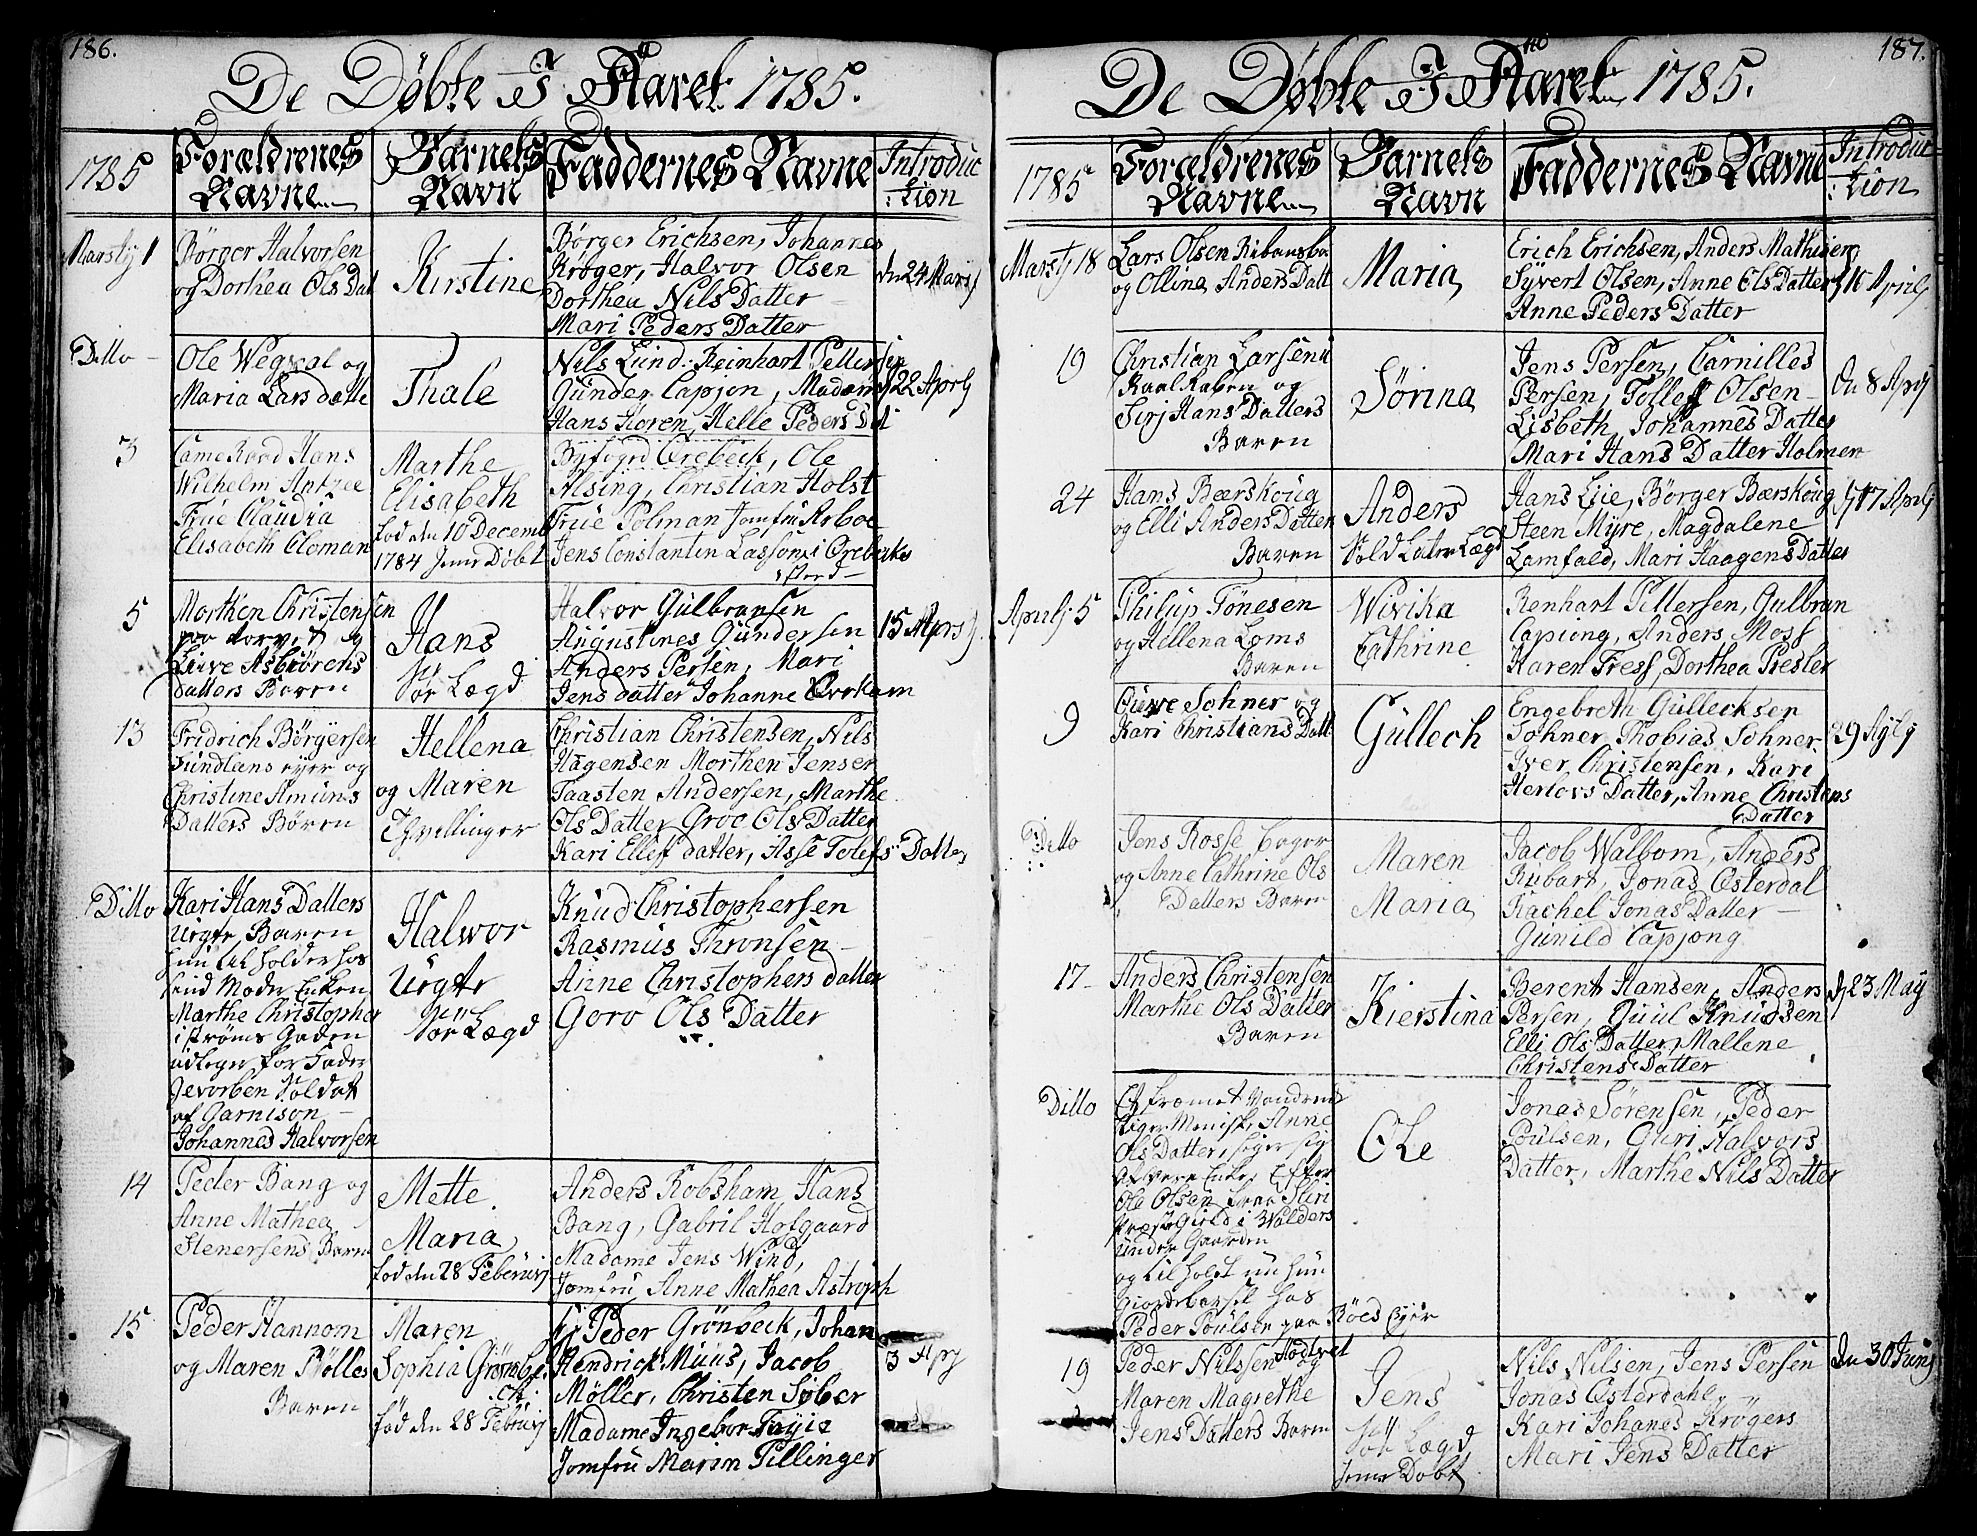 186.
De Døbte I Aaret 1785.
1785
Forældrenes
Navne
Barnets
Navn
Faddernes Navne
Introduc
:tion
Marstj 1
Børger Halvorsen
og Dorthea Ols Dat
Kirstine
Børger Erichsen, Johannes
Krøger, Halvor Olsen
Dorthea Nils Datter
Mari Peders Datter
dn 24 Marsj
Ditto
Ole Wegsal og
Maria Lars datte
Thale
Nils Lund. Reinhart Pettersen
Gunder Capjon, Madame
Hans Floren, Helle Peders Dat
22 Aprlj
3
Came Raad Hans
Wilhelm
Frue Claudia
Elisabeth Cloman
Marthe
Elisabeth
fod den 10 Decemb
1784 Jemr Døbt
Byfogd Crebeck, Ole
Alsing, Christian Holst
Frue Polman Jomfru Arboe
Jens Constantin Lasson i Orebeks
sted
5
Morthen Christensen
paa torvet og
Live Asbiørens
Datters Baren
Hans
Sør Lægd
Halvor Gulbransen
Augustines Gundersen
Anders Persen, Mari
Jens datter Johanne Ovrkam
15 Aprsj.
13
Fridrich Børgersen
Sundløns eyer og
Christine Amuns
Datters Børen
Hellena
og Maren
Thvellinger
Christian Christensen, Nils
Hagensen Morthen Jensen
Taasten Andersen, Marthe
Ols Datter Groe Ols Datter
Kari Ellef datter, Asse Tolefs Datter
Ditto
Kari Hans Datters
Uegte Baren
hun til holder hos
sind Moder Enken
Marthe Christopher
i strøms Gaden
udlegger for Fader
gevorben Soldat
af Garnison
Johannes Halvorsen
Halwor
Uegte
Sør Lægd
Knud Christophersen
Rasmus Thronsen
Anne Christophers datter
Goro Ols Datter
14
Peder Bang og
Anne Mathea
Stenersens Baren
Mette
Maria
fod den 28 Feberuarj
Anders Robsham Hans
Bang, Gabril Hofgaard
Madame Jens Wind,
Jomfru Anne Mathea Astroph
15
Peder Hannom
og Maren Bølles
Baren
Maren
Sophia Grønbe
ck.
fød den 28 Februarj
Hr Peder Grønbeck, Johan
Hendrick Muus, Jacob
Møller, Christen Søber
Madame Ingebor Fayie
Jomfru Marin Pillinger
3 Aprj
187.
De Døbte I Aaret 1785.
1785
Forældrenes
Navne
Barnets
Navn
Faddernes Navne
Introduc
:tion
Marstj 18
Lars Olsen
og Olline Anders Datt
Maria
Erich Erichsen, Anders Mathisen
Syvert Olsen, Anne Ols Datter
Anne Peders Datter
16 Aprilj
19
Christian Larsen
Raalraben og
Sirj Hans Datters
Baren
Sørina
Jens Persen, Carnilles
Persen, Tollef Olsen
Lisbeth Johannes Datter
Mari Hans Datter Holmen
dn 8 Aprj
24
Hans Bærskoug
og Elli Anders Datter
Baren
Anders
Sold Later Lægd
Hans Lie, Børger Bærskoug
Steen Myre, Magdalene
Lamfald, Mari Haagens Datter
17 Aprlj
Aprilj 5
Philip Tønesen
og Hellena Loms
Baren
Wivika
Cathrine
Renhart Pettersen, Gulbran
Capiong, Anders Moss
Karen Fress, Dorthea Presler
9
Ouwe Sohner og
Kari Christians Datt
Gullech
Engebreth Gullecksen
Sohner, Thobias Sohner
Iver Christensen, Kari
Herlovs Datter, Anne Christens
Datter
29 Aplj
Ditto
Jens Rosse bager
og Anne Cathrine Ols
Datters Baren
Maren
Maria
Jacob Walbom, Anders
Rubart, Jonas Osterdal
Rachel Jonas Datter
Gunild Capjong
17
Anders Christensen
Marthe Ols Datter
Baren
Kierstina
Berent Hansen, Anders
Persen, Guul Knudsen
Elli Ols Datter, Mallene
Christens Datter
dn 23 May
Ditto
Et fremet Vandrend
tiger Menisk, Anne
Ols Datter, siger sig
at være Enke Efter
Ole Olsen fraa Slire
Præstegield i Walders
under Gaarden
og til holdt nu hun
giorde barsel hos
Peder Poulsen paa Røes Eyer
Ole
Jonas Sørensen, Peder
Poulsen, Guri Halvors
Datter, Marthe Nils Datter
19
Peder Nilssen Hodtvet
og
Maren Magrethe
Jens Datters Baren
Jens
Sør Lægd
Jemr Døbt
Nils Nilsen, Jens Persen
Jonas Østerdahl
Kari Johanes Krøgers
Mari Jens Datter
dn 30 Junj